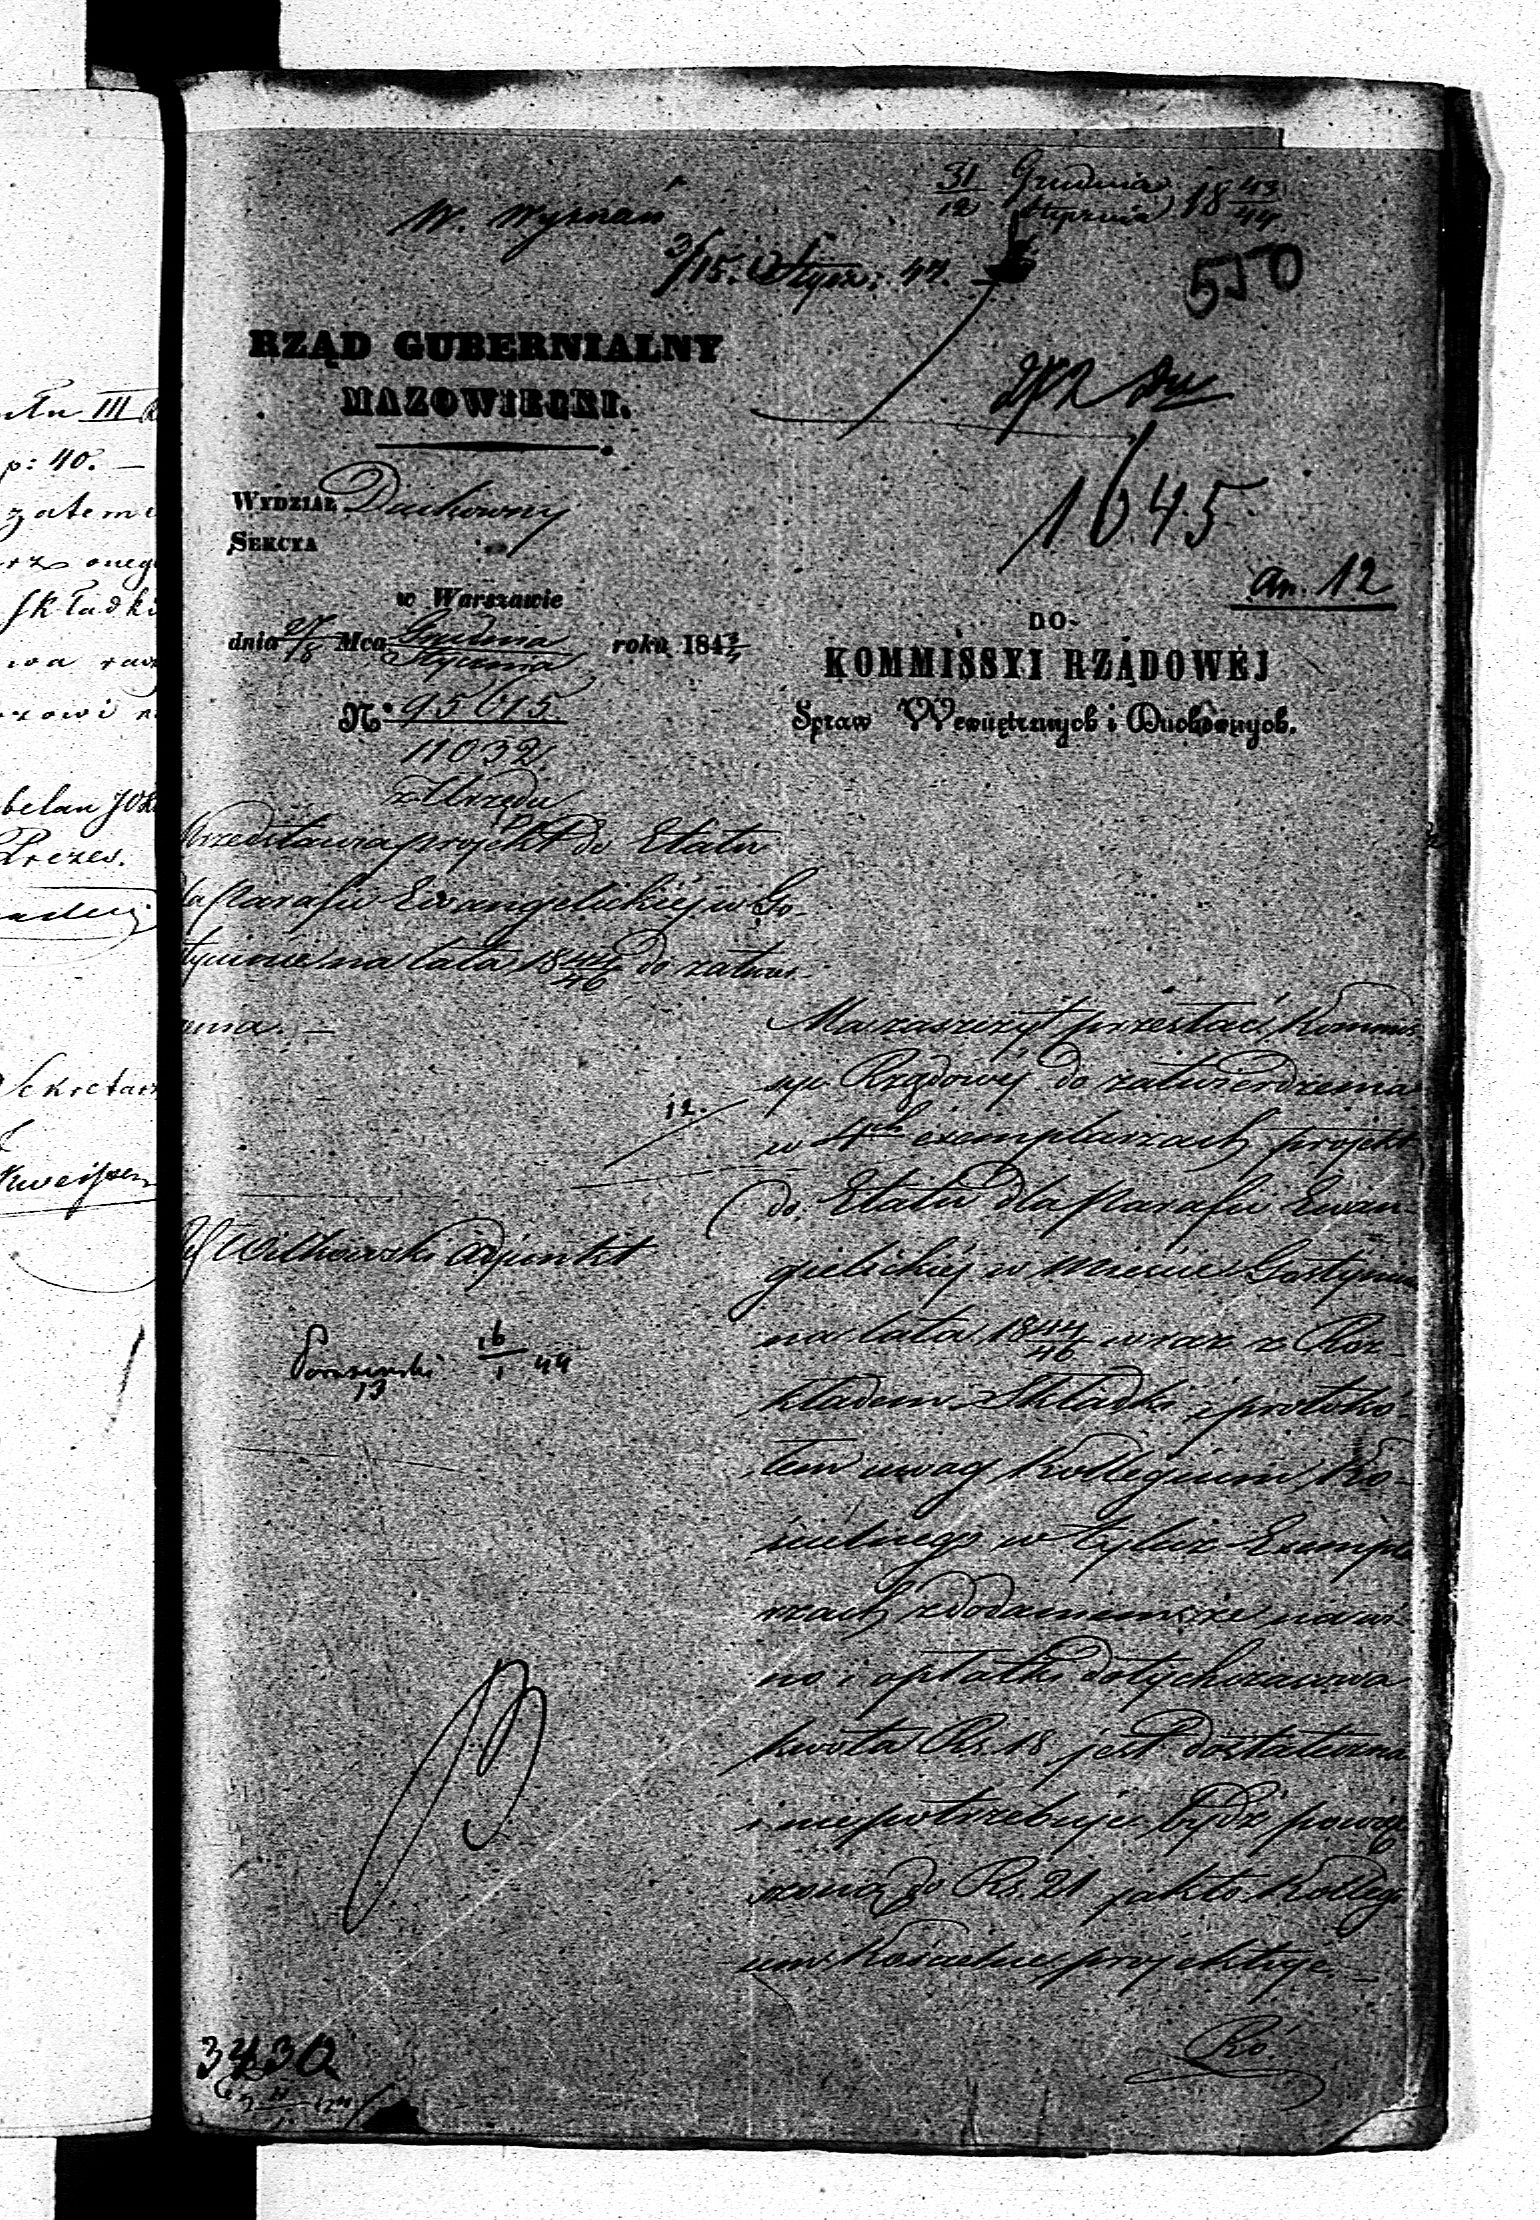 31/12 Grudnia/Stycznia 18 43/44
W. Wyznań
3/15. Stycz: 44.
550
1645
an. 12
RZĄD GUBERNIALNY
MAZOWIECKI.
WYDZIAŁ Duchowny
SEKCYA
w Warszawie
dnia 27/8 Mca Grudnia/Stycznia roku 184 3/4
N. 95615
11032
z Urzędu
Przedstawia projekt do Etatu
dla Parafii Ewangelickiéj w Go-
styninie na lata 18 44/46 do zatwier-
dzenia. —
Witkowski Adjunkt
16/1 44
12.
DO
KOMMISSYI RZĄDOWÉJ
Spraw Wewnętrznych i Duchownych.
Ma zaszczyt przesłać Kommis-
syi Rządowéj do zatwierdzenia
w 4ch exemplarzach projekt
do Etatu dla Parafii Ewan-
gielickiéj w mieście Gostyninie
na lata 18 44/46 wraz z Roz-
kładem Składki i protokó-
łem uwag Kollegium Ko-
ścielnego w tyluż Exempla-
rzach z dodaniem że na wi-
no i opłatki dotychczasowa
kwota Rs. 18 jest dostateczna
i niepotrzebuje bydź powięk-
szoną do Rs. 21 jak to Kollegi-
um Kościelne projektuje. —
3430
ału III
p: 40. —
zatem
onego
Składki
wa
Prezes.
Sekretarz